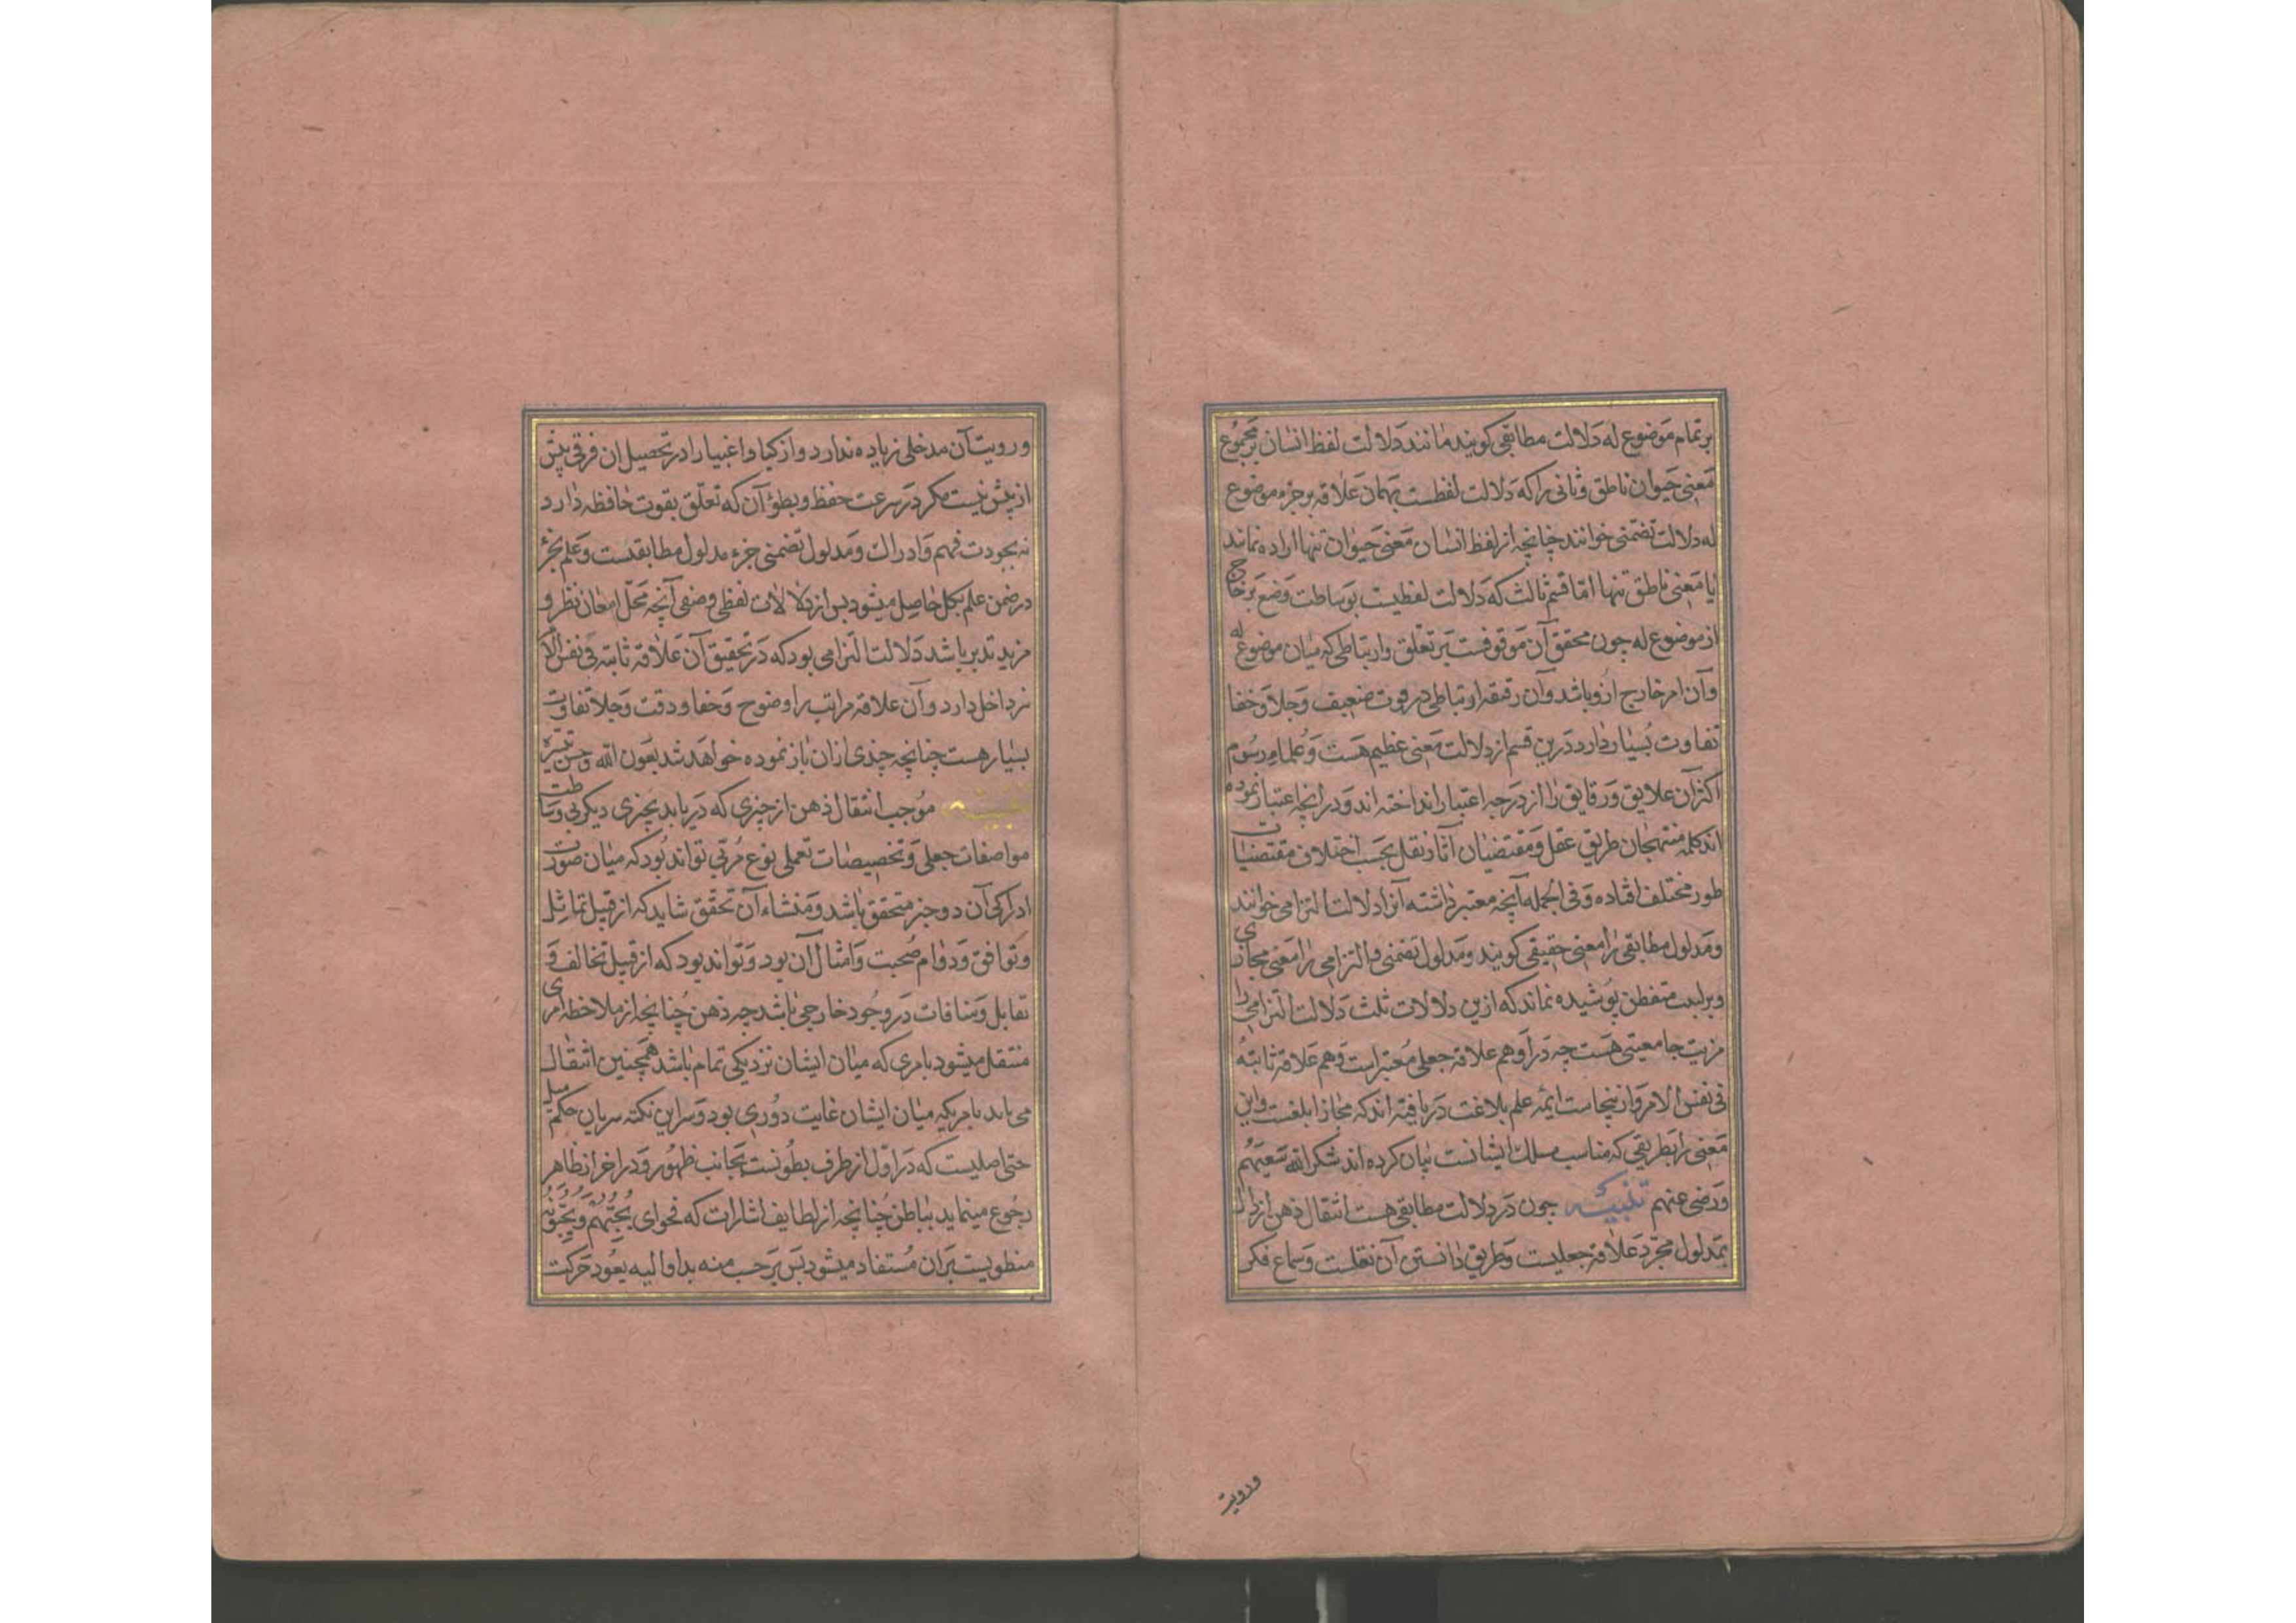 بر تمام موضوع له دلالت مطابقی کویند مانند دلالت لفظ انسان بر مجموع
معنی حیوان ناطق و ثانی را که دلالت لفظست بهمان علاقه بر جزء موضوع
له دلالت تضمنی خوانند چنانچه از لفظ انسان معنی حیوان تنها اراده نمایند
یا معنی ناطق تنها اما قسم ثالث که دلالت لفظیست بوساطت وضع بر خارج
از موضوع له چون محقق آن موقوفست بر تعلق و ارتباطی که میان موضوع له
و آن امر خارج ازو باشد و آن رقیقه ارتباطی در قوت ضعیف و جلا و خفا
تفاوت بسیار دارد درین قسم از دلالت معنی عظیم هست و علماء رسوم
اکثر آن علایق و رقایق را از درجه اعتبار انداخته اند و در آنچه اعتبار نموده
اند کلمه منتهجان طریق عقل و مقتضیان آثار نقل بحسب اختلاف مقتضیات
طور مختلف افتاده و فی الجمله آنچه معتبر داشته آنرا دلالت التزامی خوانند
و مدلول مطابقی را معنی حقیقی کویند و مدلول تضمنی و التزامی را معنی مجازی
و بر لبیب متفطن پوشیده نماند که ازین دلالات ثلث دلالت التزامی را
مزیت جامعیتی هست چه در او هم علاقه جعلی معتبر است و هم علاقه ثابته
فی نفس الامر و ازینجاست ایمه علم بلاغت دریافته اند که مجاز ابلغست و این
معنی را بطریقی که مناسب مسلک ایشانست بیان کرده اند شکر الله سعیهم
و رضی عنهم تنبیه چون در دلالت مطابقی هست انتقال ذهن از دال
بمدلول مجرد علاقه جعلیست و طریق دانستن آن نقلست و سماع فکر
ورویت
و رویت آن مدخلی زیاده ندارد و ازکیا و اغبیا را در تحصیل ان فرقی بیش
از پیش نیست مکر در سرعت حفظ و بطؤ آن که تعلق بقوت حافظه دارد
نه بجودت فهم و ادراک و مدلول تضمنی جزء مدلول مطابقیست و علم بجزء
در ضمن علم بکل حاصل میشود پس از دلالات لفظی وضعی آنچه محل امعان نظر و
مزید تدبر باشد دلالت التزامی بود که در تحقیق آن علاقه ثابته فی نفس الامر
نیز داخل دارد و آن علاقه مراتب را وضوح و خفا و دقت و جلا تفاوت
بسیار هست چنانچه چندی ازان باز نموده خواهد شد بعون الله و حسن تیسیره
تنبیه موجب انتقال ذهن از چیزی که دریابد بچیزی دیکر بی وساطت
مواصفات جعلی و تخصیصات تعملی نوع قربی تواند بود که میان صورت
ادراکی آن دو چیز متحقق باشد و منشاء آن تحقق شاید که از قبیل تماثل
و توافق و دوام صحبت و امثال آن بود و تواند بود که از قبیل تخالف و
تقابل و منافات در وجود خارجی باشد چه ذهن چنانچه از ملاحظه امری
منتقل میشود بامری که میان ایشان نزدیکی تمام باشد همچنین انتقال
می یابد بامریکه میان ایشان غایت دوری بود و سر این نکته سریان حکم میل
حتی اصلیست که در اول از طرف بطونست بجانب ظهور و در اخر از ظاهر
رجوع مینماید بباطن چنانچه از لطایف اشارات که فحوای یحبهم و یحبونه
منطویست بران مستفاد میشود پس بر حسب منه بدا و الیه یعود حرکت